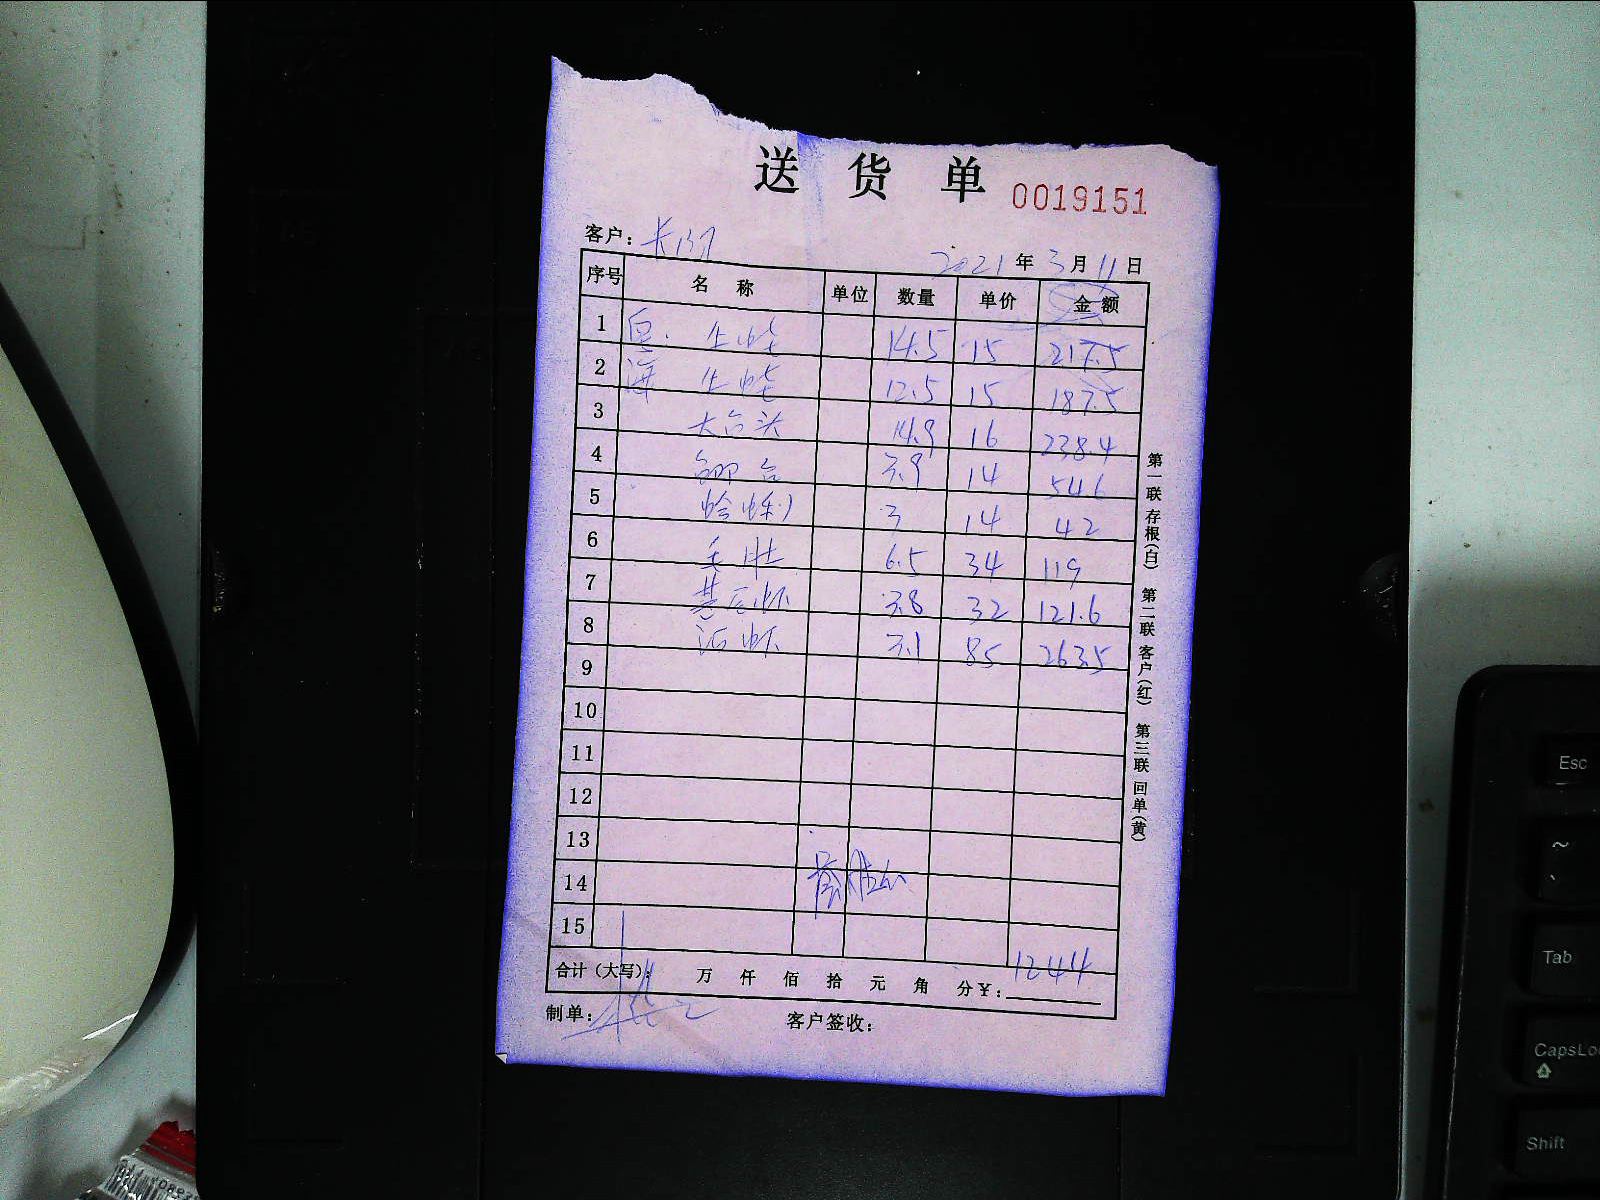 送货单 0019151
客户：长阳
2021年3月11日
序号 名称 单位 数量 单价 金额
1 生蚝 14.5 15 217.5
2 生蚝 12.5 15 187.5
3 14.9 16 238.4
4 3.9 14 54.6
5 蛤蜊 3 14 42
6 6.5 34 119
7 基尾虾 3.8 32 121.6
8 沼虾 3.1 85 263.5
9
10
11
12
13
14
15
1244
合计（大写）： 万 仟 佰 拾 元 角 分￥：
制单：
客户签收：
第一联 存根（白） 第二联 客户（红） 第三联 回单（黄）
Esc
~
Tab
CapsLo
Shift